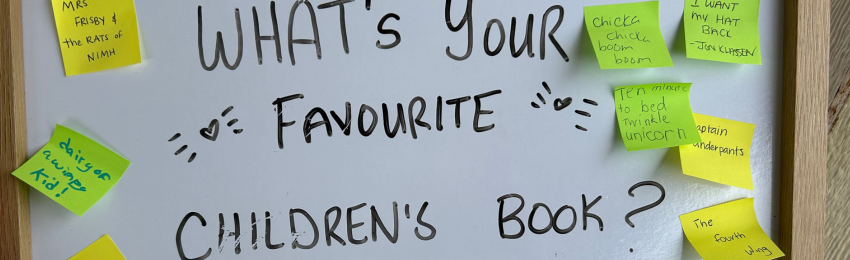 MRS
FRISBY &
the RATS of
NIMH
WHAT's YOUR
FAVOURITE
CHILDREN'S BOOK?
chicka
chicka
boom
boom
I WANT
my HAT
BACK
-JON KLASSEN
Ten minute
to bed
Twinkle
unicorn
aptain
nderpants
The
fourth
Wing
dairy of
a wimpy
Kid!